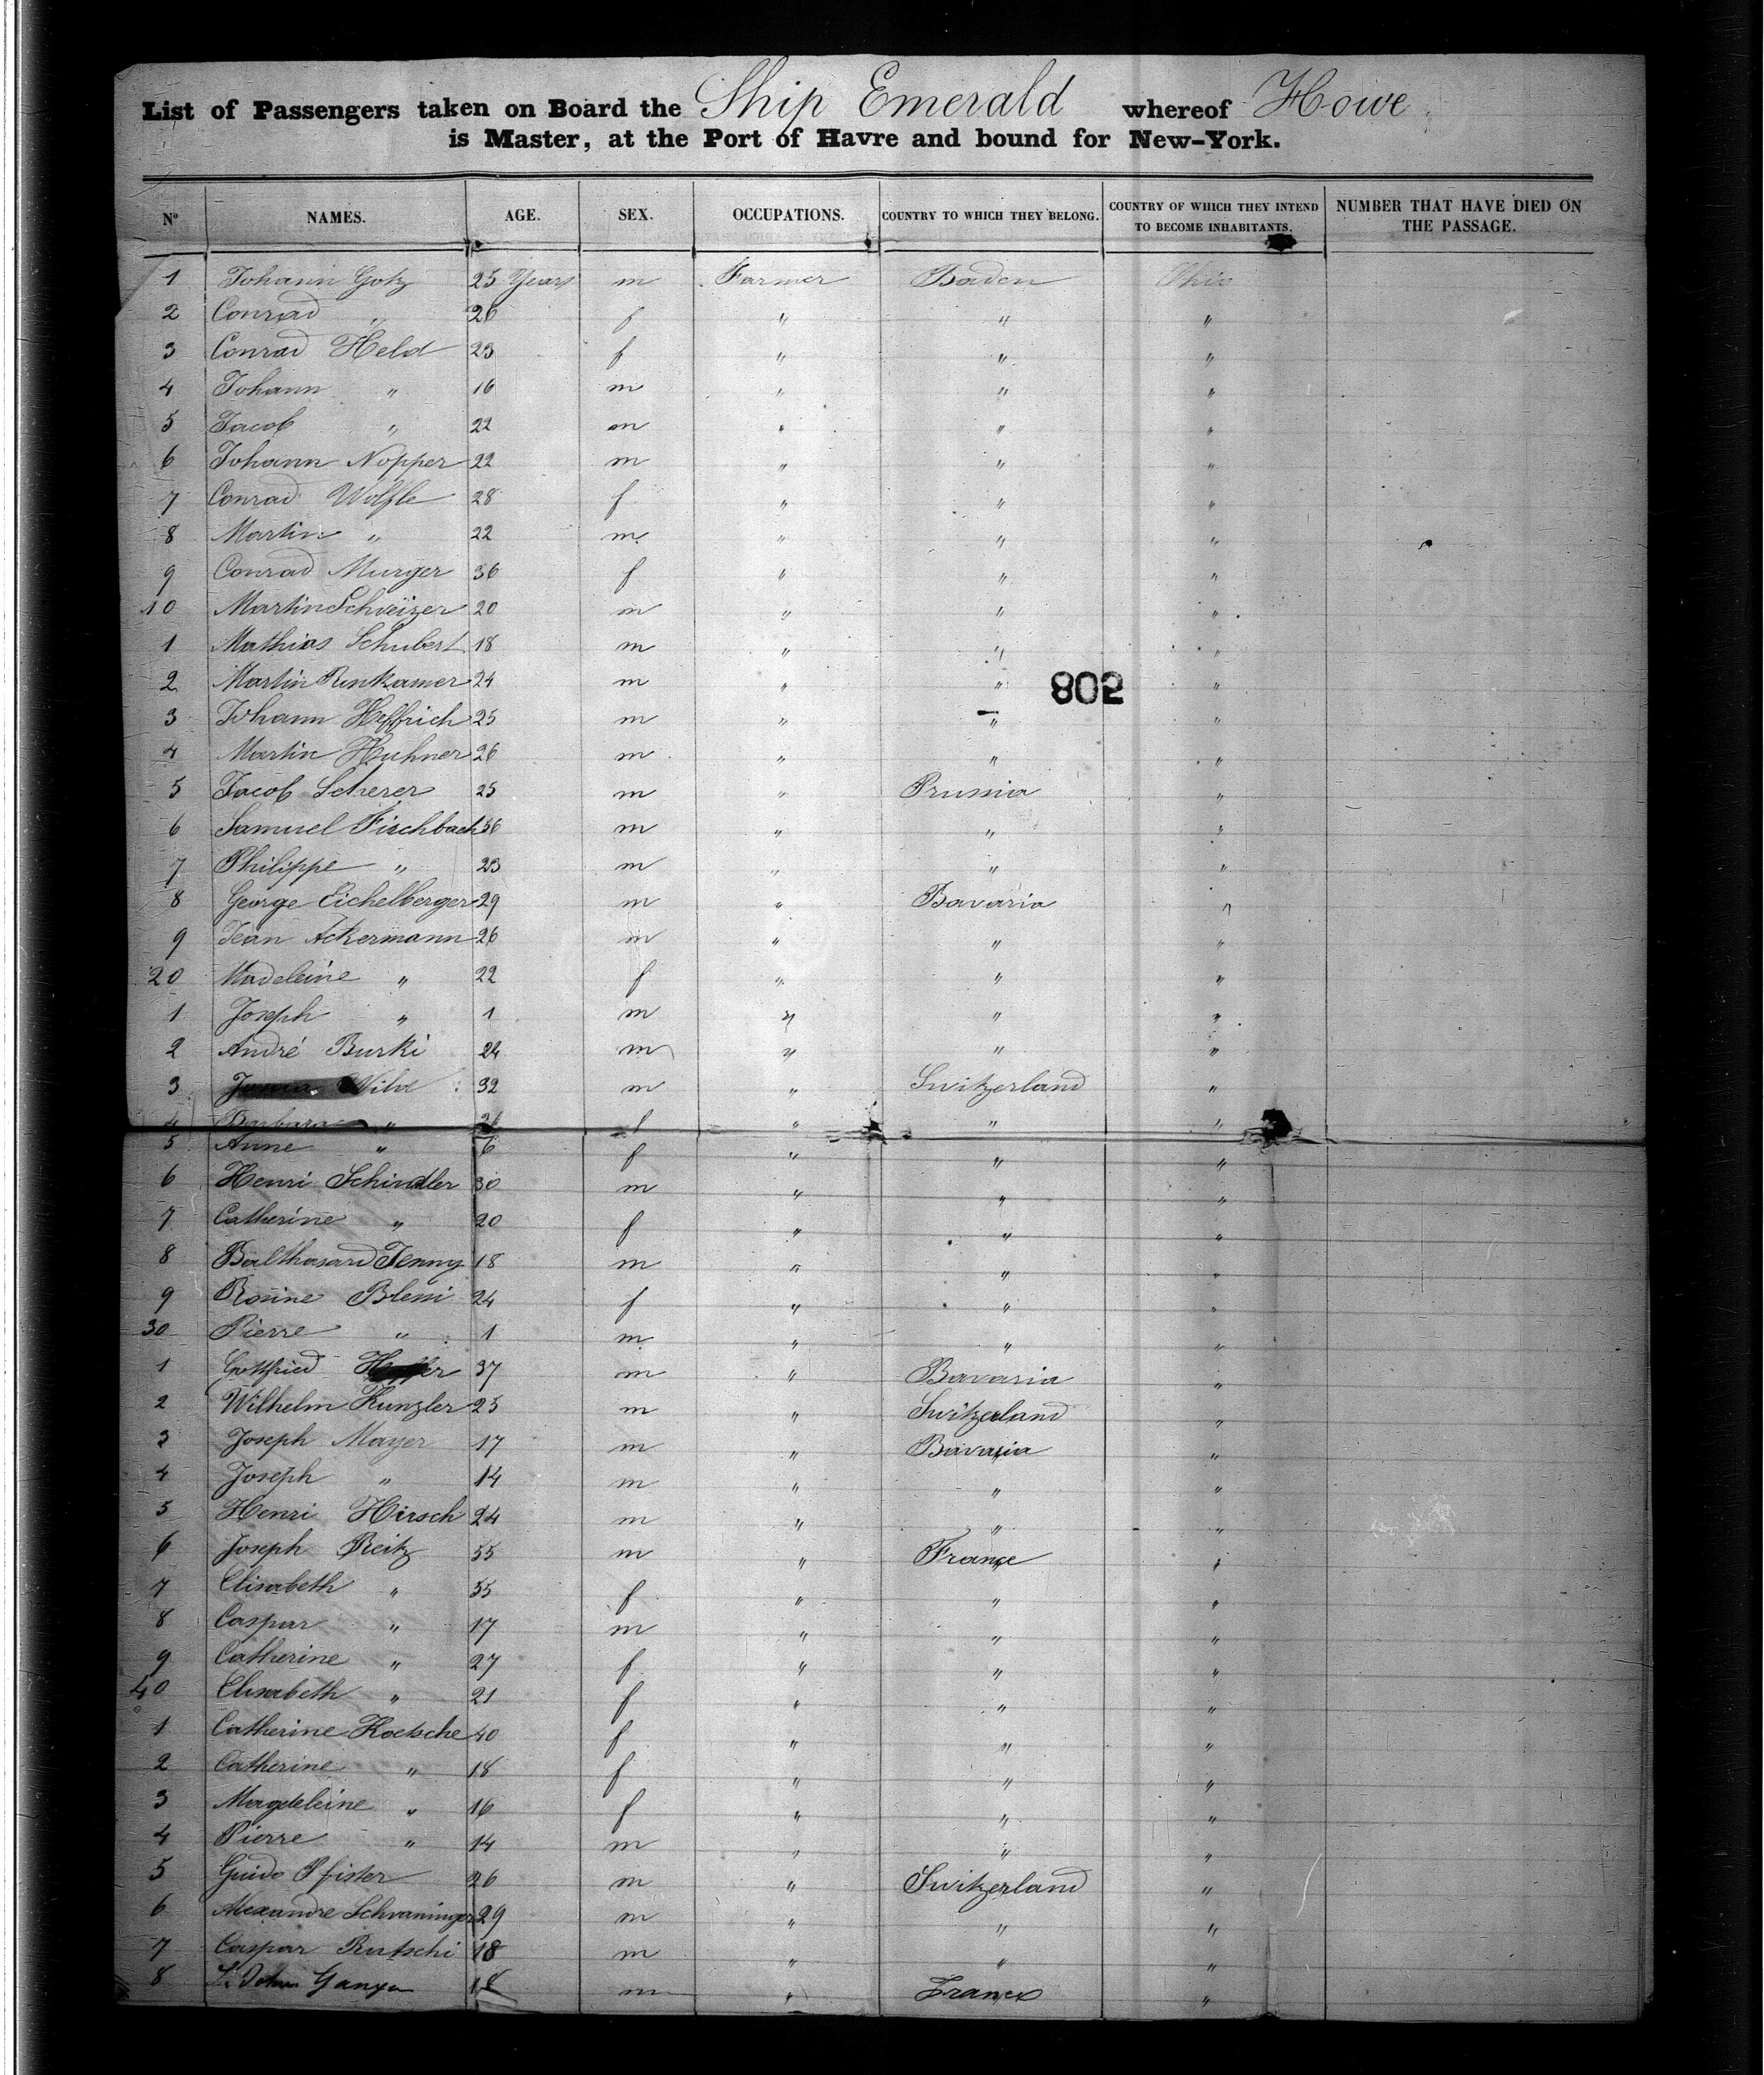 List of Passengers taken on Board the Ship Emerald whereof Howe
is Master, at the Port of Havre and bound for New-York.
Nº NAMES. AGE. SEX. OCCUPATIONS. COUNTRY TO WHICH THEY BELONG. COUNTRY OF WHICH THEY INTEND TO BECOME INHABITANTS. NUMBER THAT HAVE DIED ON THE PASSAGE.
1 Johann Gotz 25 Years m Farmer Baden Ohio
2 Conrad " 26 f " " "
3 Conrad Held 23 f " " "
4 Johann " 16 m " " "
5 Jacob " 22 m " " "
6 Johann Nopper 22 m " " "
7 Conrad Wolfle 28 f " " "
8 Martin " 22 m " " "
9 Conrad Murger 36 f " " "
10 Martin Schveizer 20 m " " "
1 Mathias Schubert 18 m " " "
2 Martin Renkamer 24 m " " "
802
3 Johann Heffrich 25 m " " "
4 Martin Huhner 26 m " " "
5 Jacob Scherer 25 m " Prussia "
6 Samuel Fischbach 56 m " " "
7 Philippe " 23 m " " "
8 George Eichelberger 29 m " Bavaria "
9 Jean Ackermann 26 m " " "
20 Madeleine " 22 f " " "
1 Joseph " 1 m " " "
2 André Burki 24 m " " "
3 Wild 32 m " Switzerland "
4 Barbara " f " " "
5 Anne " 6 f " " "
6 Henri Schindler 30 m " " "
7 Catherine " 20 f " " "
8 Balthasard Jenny 18 m " " "
9 Rosine Blesi 24 f " " "
30 Pierre " 1 m " " "
1 Gottfried 37 m " Bavaria "
2 Wilhelm Kunzler 25 m " Switzerland "
3 Joseph Mayer 17 m " Bavaria "
4 Joseph " 14 m " " "
5 Henri Hirsch 24 m " " "
6 Joseph Reitz 55 m " France "
7 Elisabeth " 55 f " " "
8 Caspar " 17 m " " "
9 Catherine " 27 f " " "
40 Elisabeth " 21 f " " "
1 Catherine Koetsche 40 f " " "
2 Catherine " 18 f " " "
3 Magdeleine " 16 f " " "
4 Pierre " 14 m " " "
5 Guido Pfister 26 m " Switzerland "
6 Alexandre Schvaninger 29 m " " "
7 Caspar Rutschi 18 m " " "
8 18 m " France "